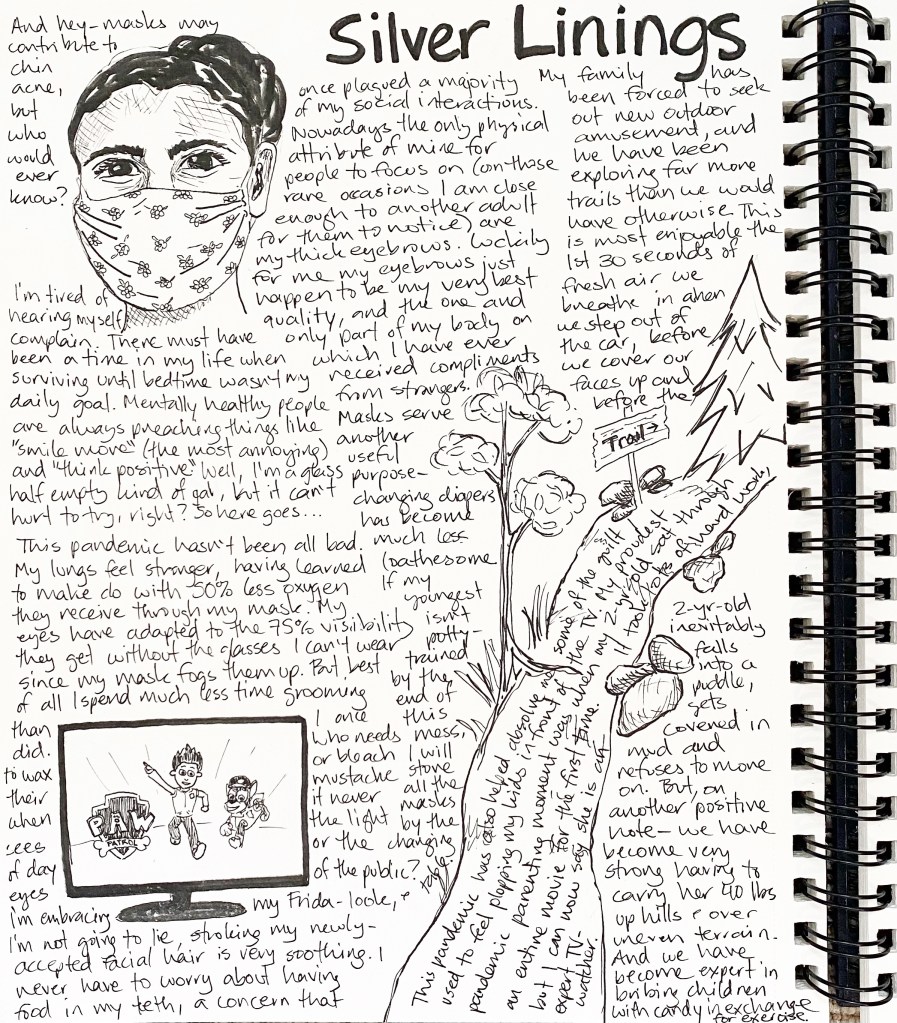 Silver Linings
I'm tired of
hearing myself
complain. There must have
been a time in my life when
surviving until bedtime wasn't my
daily goal. Mentally healthy people
are always preaching things like
"smile more" (the most annoying)
and "think positive". Well, I'm a glass
half empty kind of gal, but it can't
hurt to try, right? So here goes...
This pandemic hasn't been all bad.
My lungs feel stronger, having learned
to make do with 50% less oxygen
they receive through my mask. My
eyes have adapted to the 75% visibility
they get without the glasses I can't wear
since my mask fogs them up. But best
of all I spend much less time grooming
than I once
did. who needs
to wax or bleach
their mustache
when it never
sees the light
of day or the
eyes of the public?
I'm embracing my Frida-look, &
I'm not going to lie, stroking my newly-
accepted facial hair is very soothing. I
never have to worry about having
food in my teeth, a concern that
once plagued a majority
of my social interactions.
Nowadays the only physical
attribute of mine for
people to focus on (on those
rare occasions I am close
enough to another adult
for them to notice) are
my thick eyebrows. Luckily
for me my eyebrows just
happen to be my very best
quality, and the one and
only part of my body on
which I have ever
received compliments
from strangers.
And hey-masks may
contribute to
chin
acne,
but
who
would
ever
know?
Masks serve
another
useful
purpose-
changing diapers
has become
much less
loathesome
If my
youngest
isn't
potty-
trained
by the
end of
this
mess,
I will
store
all the
masks
by the
changing
table.
This pandemic has also helped absolve me some of the guilt I
used to feel plopping my kids in front of the TV. My proudest
pandemic parenting moment was when my 2-yr-old sat through
an entire movie for the first time. It took lots of hard work,
but I can now say she is an
expert TV-
watcher.
My family has
been forced to seek
out new outdoor
amusement, and
we have been
exploring far more
trails than we would
have otherwise. This
is most enjoyable the
1st 30 seconds of
fresh air we
breathe in when
we step out of
the car, before
we cover our
faces up and
before the
2-yr-old
inevitably
falls
into a
puddle,
gets
covered in
mud and
refuses to move
on. But, on
another positive
note- we have
become very
strong having to
carry her 40 lbs
up hills & over
uneven terrain.
And we have
become expert in
bribing children
with candy in exchange
for exercise.
Trail→
PAW
PATROL